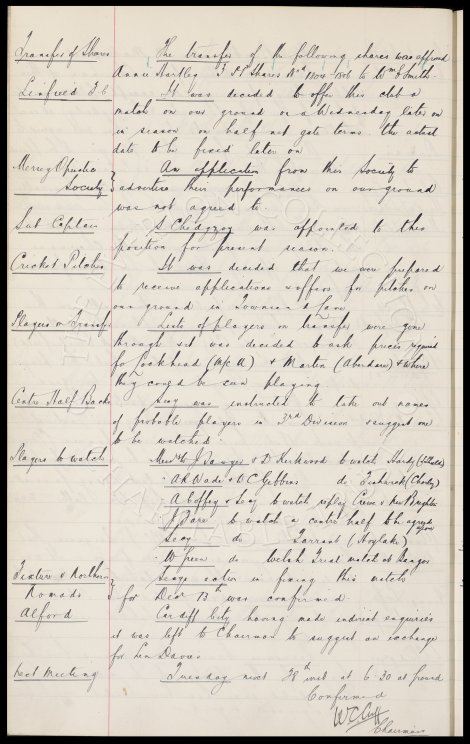 Transfer of Shares
The transfer of the following shares was approved
Annie Hartley 3 Shares to Wm Smith
Linfield F.C.
It was decided to offer this club a
match on our ground on a Wednesday later on
in season on half net gate terms. The actual
date to be fixed later on
Operatic
Society
An application from this Society to
advertise their performances on our ground
was not agreed to.
Sub Captain
S Chedgzoy was appointed to this
position for present season.
Cricket Pitches
It was decided that we were prepared
to receive applications & offers for pitches on
our ground in Lane
Players on Transfer
Lists of players on transfer were gone
through & it was decided to ask prices required
for Lockhead & Martin (Aberdare) & where
they could be seen playing.
Centre Half Backs
Secy was instructed to take out names
of probable players in 3rd Division & suggest one
to be watched.
Players to watch
Messrs J Sawyer & D Kirkwood to watch Hardy
A R Wade & W C Gibbins do (Chorley)
A Coffey & Secy to watch replay Crewe & New Brighton
J Fare to watch a centre half to be agreed upon
Secy do Tarrant (Hoylake)
W Green do Welsh Trial match at Bangor
Fixture & Northern
Nomads
Secys action in fixing this match
for Decr 13th was confirmed
Alford
Cardiff City having made indirect enquiries
it was left to Chairman to suggest an exchange
for Len Davies
Next Meeting
Tuesday next 28th inst at 6.30 at ground
Confirmed
W.C. Cuff
Chairman